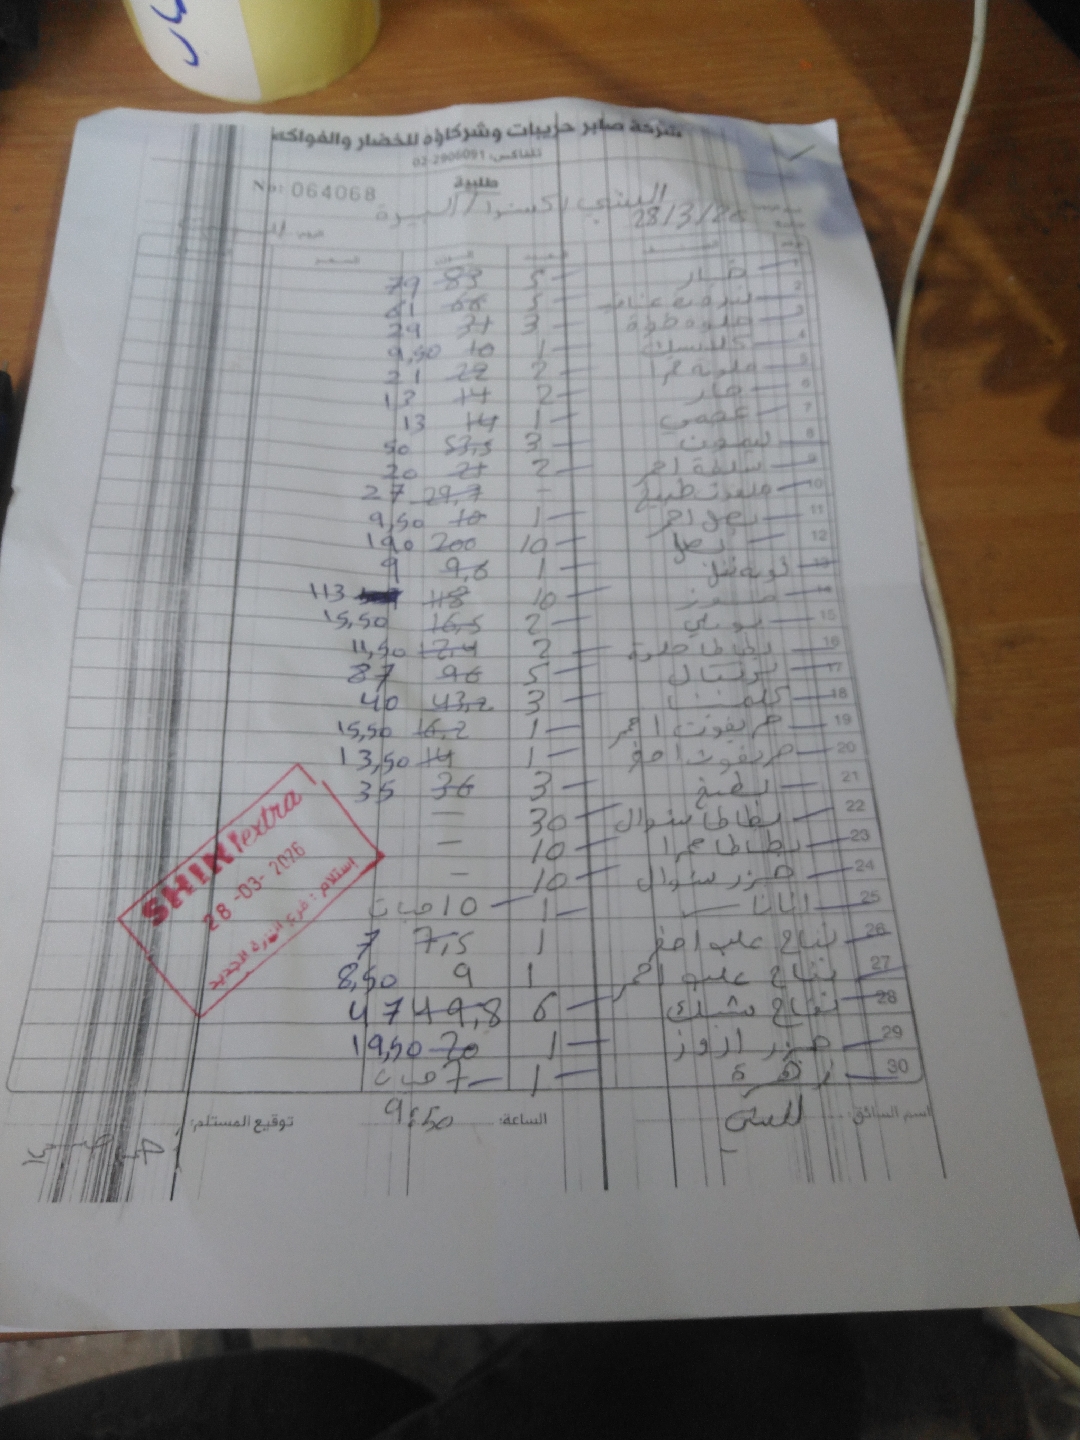 شركة صابر حريبات وشركاؤه للخضار والفواكه
تلفاكس: 02-2906091
طلبية
No: 064068
البيرة
28/3/26
1 خيار 5 83 79
2 بندورة عناب 5 66 61
3 3 34 29
4 1 10 9,50
5 2 22 21
6 حار 2 14 12
7 1 14 13
8 ليمون 3 53,5 50
9 2 21 20
10 - 29,7 27
11 بصل احمر 1 10 9,50
12 بصل 10 200 190
13 1 9,6 9
14 10 118 113
15 2 16,5 15,50
16 بطاطا حلوة 2 12,4 11,50
17 برتقال 5 96 87
18 3 43,2 40
19 جريفوت احمر 1 16,2 15,50
20 جريفوت اصفر 1 14 13,50
21 بطيخ 3 36 35
22 بطاطا شوال 30 —
23 بطاطا حمرا 10 —
24 جزر شوال 10 —
25 اناناس 1 10 حبات
26 تفاح علب اصفر 1 7,5 7
27 تفاح علب احمر 1 9 8,50
28 تفاح مشكل 6 49,8 47
29 1 20 19,50
30 زهرة 1 7 حبات
اسم السائق:
الساعة: 9:50
توقيع المستلم:
SHINI extra
28-03-2026
استلام : فرع البيرة الجديد